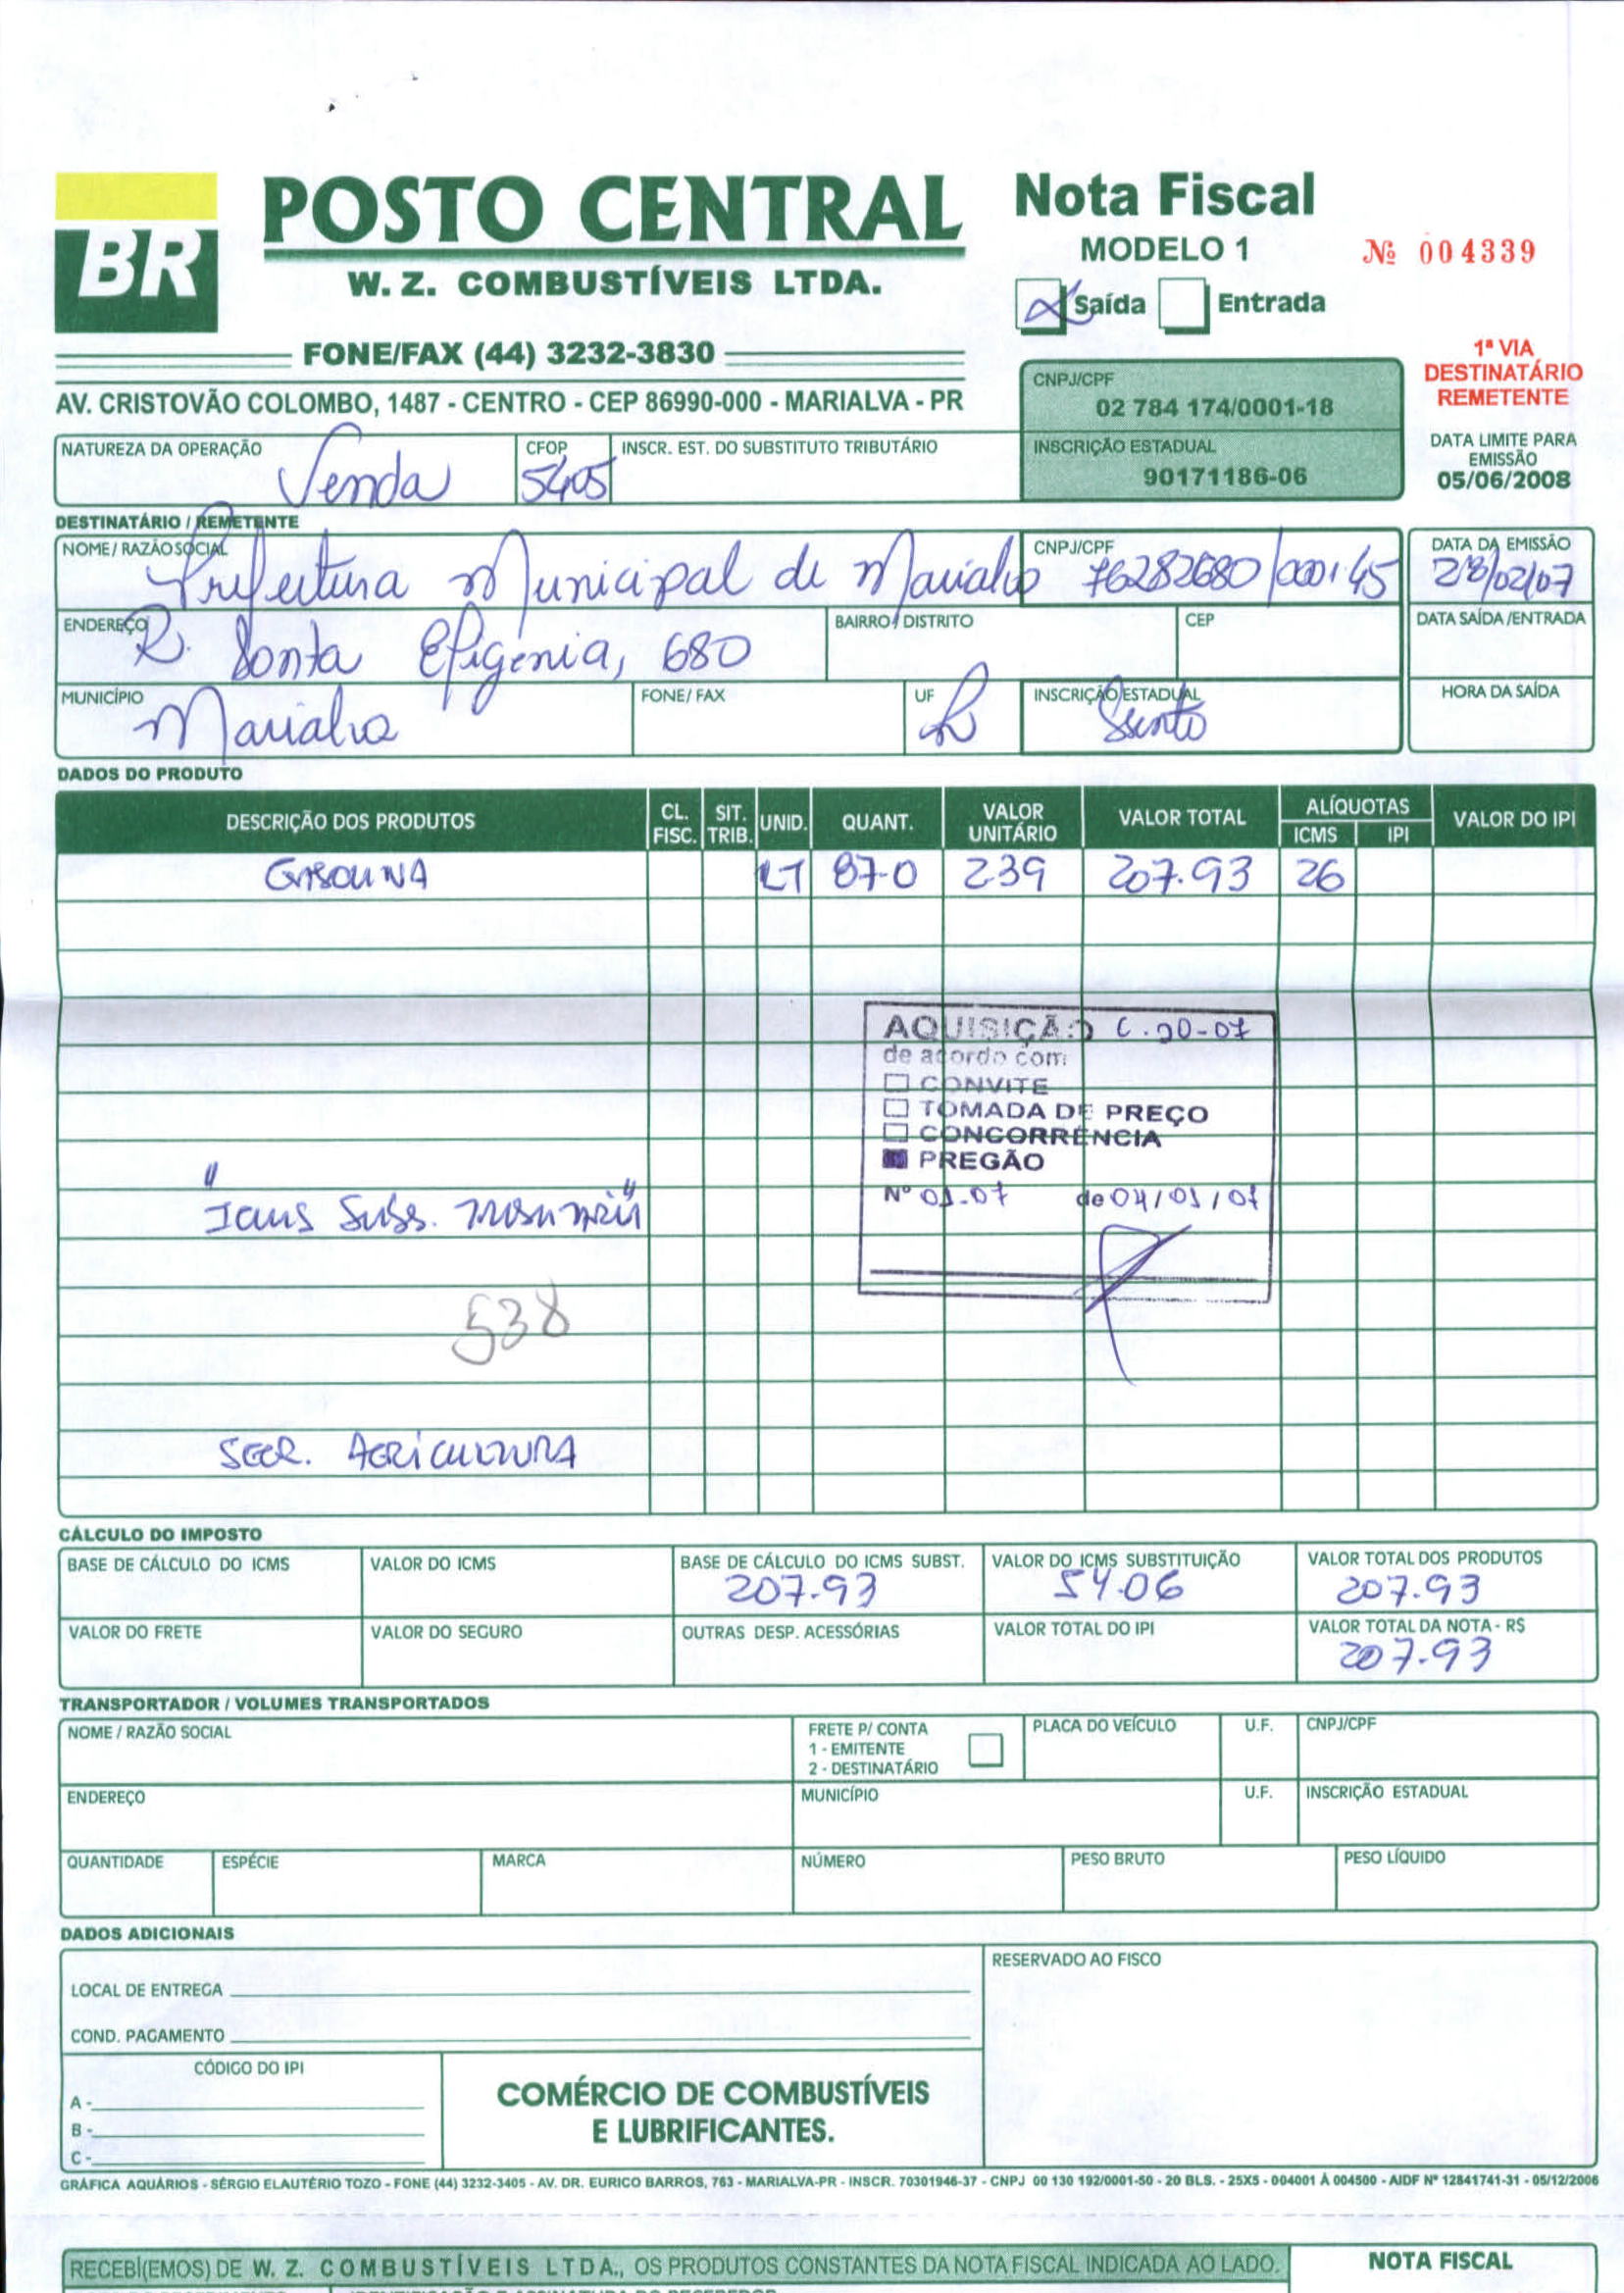 BR
POSTO CENTRAL
W. Z. COMBUSTÍVEIS LTDA.
FONE/FAX (44) 3232-3830
AV. CRISTOVÃO COLOMBO, 1487 - CENTRO - CEP 86990-000 - MARIALVA - PR
Nota Fiscal
MODELO 1
Nº 004339
Saída Entrada
1ª VIA
DESTINATÁRIO
REMETENTE
CNPJ/CPF
02 784 174/0001-18
INSCRIÇÃO ESTADUAL
90171186-06
DATA LIMITE PARA
EMISSÃO
05/06/2008
NATUREZA DA OPERAÇÃO CFOP INSCR. EST. DO SUBSTITUTO TRIBUTÁRIO
Venda 5405
DESTINATÁRIO / REMETENTE
NOME / RAZÃO SOCIAL CNPJ/CPF DATA DA EMISSÃO
Prefeitura Municipal de Marialva 76282680/0001-45 28/02/07
ENDEREÇO BAIRRO / DISTRITO CEP DATA SAÍDA /ENTRADA
R. Santa Efigênia, 680
MUNICÍPIO FONE/ FAX UF INSCRIÇÃO ESTADUAL HORA DA SAÍDA
Marialva
DADOS DO PRODUTO
DESCRIÇÃO DOS PRODUTOS CL. FISC. SIT. TRIB. UNID. QUANT. VALOR UNITÁRIO VALOR TOTAL ALÍQUOTAS ICMS IPI VALOR DO IPI
GASOLINA LT 87-0 2.39 207.93 26
AQUISIÇÃO C. 20-07
de acordo com:
CONVITE
TOMADA DE PREÇO
CONCORRÊNCIA
PREGÃO
Nº 01-07 de 04/01/07
"Icms Subs. "
538
SECR. AGRICULTURA
CÁLCULO DO IMPOSTO
BASE DE CÁLCULO DO ICMS VALOR DO ICMS BASE DE CÁLCULO DO ICMS SUBST. VALOR DO ICMS SUBSTITUIÇÃO VALOR TOTAL DOS PRODUTOS
207.93 54.06 207.93
VALOR DO FRETE VALOR DO SEGURO OUTRAS DESP. ACESSÓRIAS VALOR TOTAL DO IPI VALOR TOTAL DA NOTA - R$
207.93
TRANSPORTADOR / VOLUMES TRANSPORTADOS
NOME / RAZÃO SOCIAL FRETE P/ CONTA PLACA DO VEÍCULO U.F. CNPJ/CPF
1 - EMITENTE
2 - DESTINATÁRIO
ENDEREÇO MUNICÍPIO U.F. INSCRIÇÃO ESTADUAL
QUANTIDADE ESPÉCIE MARCA NÚMERO PESO BRUTO PESO LÍQUIDO
DADOS ADICIONAIS
RESERVADO AO FISCO
LOCAL DE ENTREGA
COND. PAGAMENTO
CÓDIGO DO IPI
A -
B -
C -
COMÉRCIO DE COMBUSTÍVEIS
E LUBRIFICANTES.
GRÁFICA AQUÁRIOS - SÉRGIO ELAUTÉRIO TOZO - FONE (44) 3232-3405 - AV. DR. EURICO BARROS, 763 - MARIALVA-PR - INSCR. 70301946-37 - CNPJ 00 130 192/0001-50 - 20 BLS. - 25X5 - 004001 À 004500 - AIDF Nº 12841741-31 - 05/12/2006
RECEBI(EMOS) DE W. Z. COMBUSTÍVEIS LTDA., OS PRODUTOS CONSTANTES DA NOTA FISCAL INDICADA AO LADO.
NOTA FISCAL